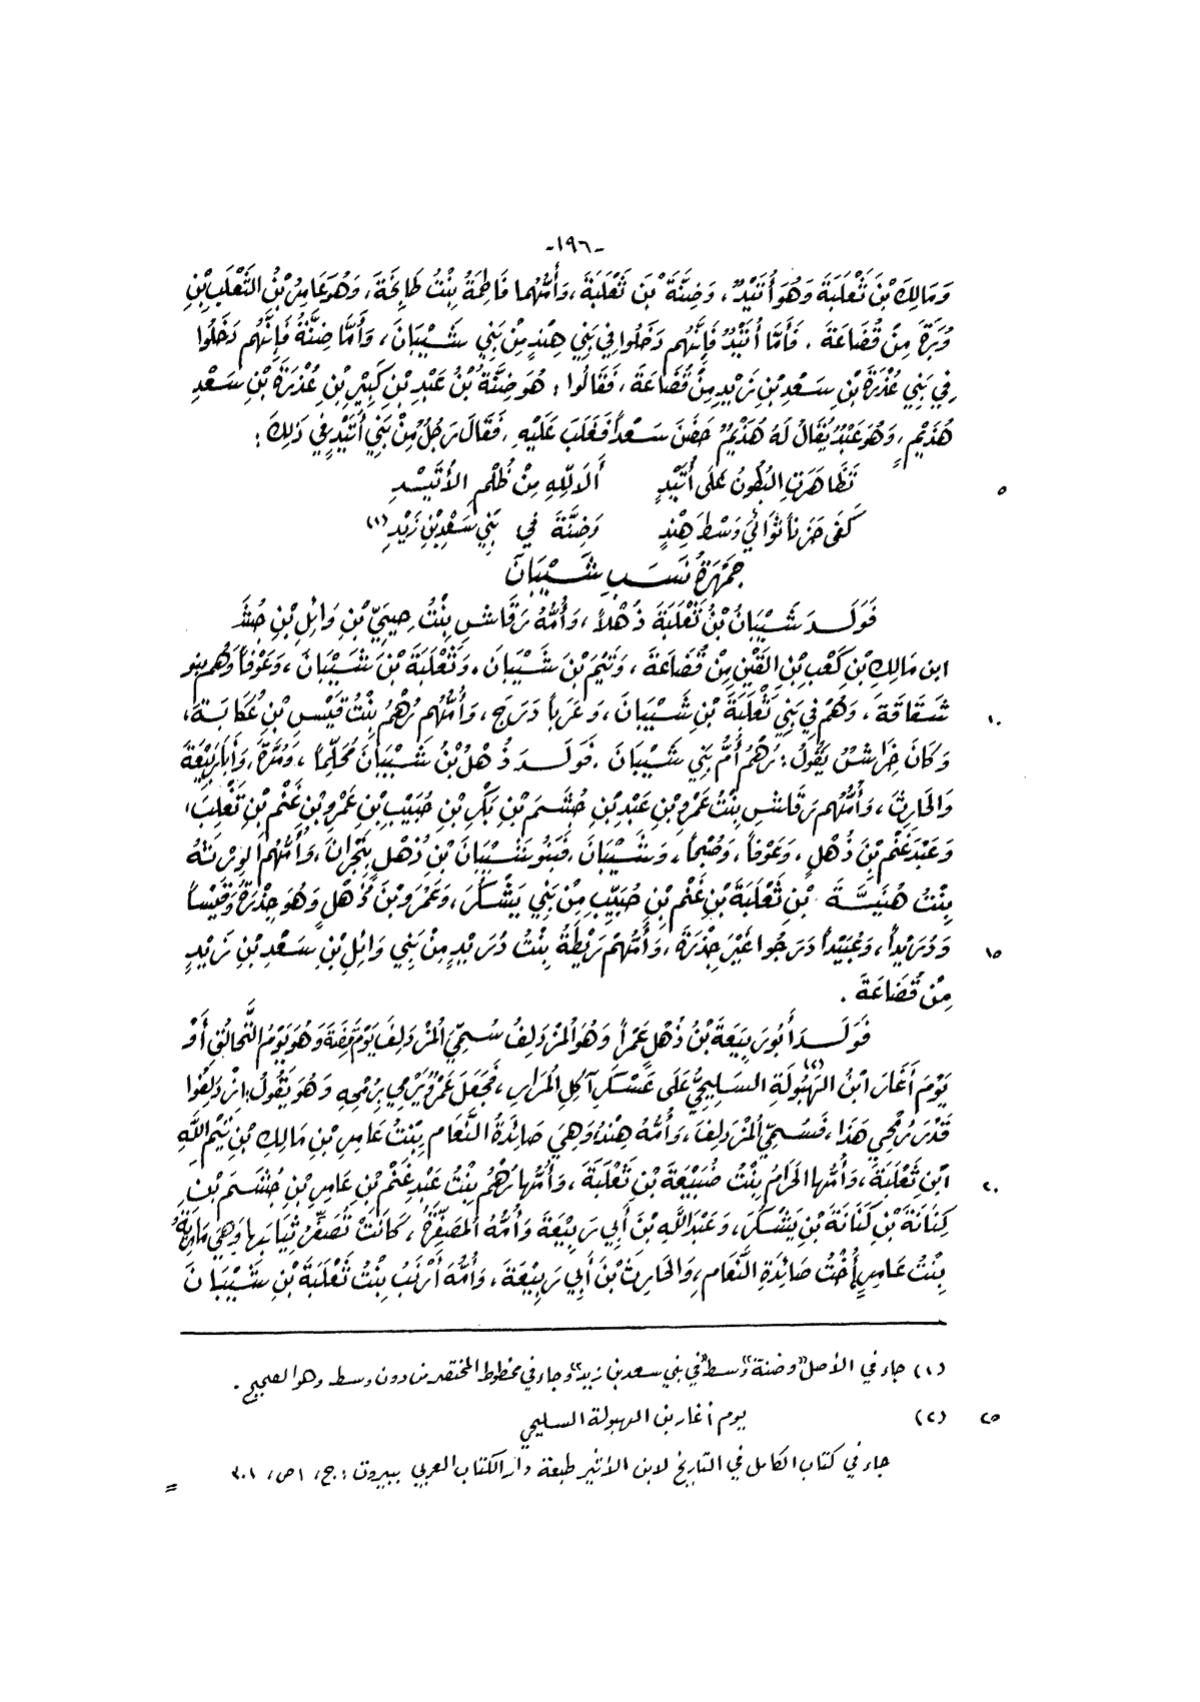 -١٩٦-
وَمَالِكَ بْنَ ثَعْلَبَةَ وَهُوَ أُتَيْدٌ، وَضِنَّةَ بْنَ ثَعْلَبَةَ، وَأُمُّهُما فَاطِمَةُ بِنْتُ طَابِخَةَ، وَهُوَ عَامِرُ بْنُ الثَّعْلَبِ بْنِ
وَبَرَةَ مِنْ قُضَاعَةَ. فَأَمَّا أُتَيْدٌ فَإِنَّهُم دَخَلُوا فِي بَنِي هِنْدٍ مِنْ بَنِي شَيْبَانَ، وَأَمَّا ضِنَّةُ فَإِنَّهُم دَخَلُوا
فِي بَنِي عُذْرَةَ بْنِ سَعْدِ بْنِ زَيْدٍ مِنْ قُضَاعَةَ، فَقَالُوا: هُوَ ضِنَّةُ بْنُ عَبْدِ بْنِ كَبِيْرِ بْنِ عُذْرَةَ بْنِ سَعْدِ
هُذَيْمٍ، وَهُوَ عَبْدٌ يُقَالُ لَهُ هُذَيْمٌ حَضَنَ سَعْداً فَغَلَبَ عَلَيْهِ. فَقَالَ رَجُلٌ مِنْ بَنِي أُتَيْدٍ فِي ذَلِكَ:
تَظَاهَرَتِ البُطُونُ عَلَى أُتَيْدٍ أَلَا لِلّهِ مِنْ ظُلْمِ الأُتَيْدِ ٥
كَفَى حَزَناً ثَوَائِي وَسْطَ هِنْدٍ وَضِنَّةَ فِي بَنِي سَعْدِ بْنِ زَيْدِ (١)
جَمْهَرَةُ نَسَبِ شَيْبَانَ
فَوَلَدَ شَيْبَانُ بْنُ ثَعْلَبَةَ ذُهْلاً، وَأُمُّهُ رَقَاشِ بِنْتُ حِيَيِّ بْنِ وَائِلِ بْنِ جُشَمَ
ابن مَالِكِ بْنِ كَعْبِ بْنِ القَيْنِ مِنْ قُضَاعَةَ، وَتَيْمَ بْنَ شَيْبَانَ، وَثَعْلَبَةَ بْنَ شَيْبَانَ، وَعَوْفاً وَهُم بنو
شَقَاقَةَ، وَهُمْ فِي بَنِي ثَعْلَبَةَ بْنِ شَيْبَانَ، وَعَرَباً دَرَجَ، وَأُمُّهُم رُهْمُ بِنْتُ قَيْسِ بْنِ عُكَابَةَ، ١٠
وَكَانَ خِرَاشٌ يَقُولُ: رُهْمُ أُمُّ بَنِي شَيْبَانَ. فَوَلَدَ ذُهْلُ بْنُ شَيْبَانَ مُحَلِّماً، وَمُرَّةَ، وَأَبَا رَبِيْعَةَ
وَالحَارِثَ، وَأُمُّهُم رَقَاشِ بِنْتُ عَمْرِو بْنِ عَبْدِ بْنِ جُشَمَ بْنِ بَكْرِ بْنِ حُبَيْبِ بْنِ عَمْرِو بْنِ غَنْمِ بْنِ تَغْلِبَ،
وَعَبْدَ غَنْمِ بْنَ ذُهْلٍ، وَعَوْفاً، وَصُبْحاً، وَشَيْبَانَ، فَبَنُو شَيْبَانَ بْنِ ذُهْلٍ بِنَجْرَانَ، وَأُمُّهُم الوِرْثَةُ
بِنْتُ هُنَيَّةَ بْنِ ثَعْلَبَةَ بْنِ غَنْمِ بْنِ حُبَيِّبٍ مِنْ بَنِي يَشْكُرَ، وَعَمْرَو بْنَ ذُهْلٍ وَهُوَ جِذْرَةُ وَقَيْساً
وَدُرَيْداً، وَعُبَيْداً دَرَجُوا غَيْرَ جِذْرَةَ، وَأُمُّهُمْ رَيْطَةُ بِنْتُ دُرَيْدٍ مِنْ بَنِي وَائِلِ بْنِ سَعْدِ بْنِ زَيْدٍ ١٥
مِنْ قُضَاعَةَ.
فَوَلَدَ أَبُو رَبِيْعَةَ بْنُ ذُهْلٍ عَمْراً وَهُوَ المُزْدَلِفُ سُمِّيَ المُزْدَلِفَ يَوْمَ قِضَةَ وَهُوَ يَوْمُ التَّحَالُقِ أَوْ
يَوْمَ أَغَارَ ابْنُ الهَبُولَةِ السَّلِيحِيُّ (٢) عَلَى عَسْكَرِ آكِلِ المُرَارِ، فَجَعَلَ عَمْرٌو يَرْمِي بِرُمْحِهِ وَهُوَ يَقُولُ: اِزْدَلِفُوا
قَدْرَ رُمْحِي هَذَا، فَسُمِّيَ المُزْدَلِفَ، وَأُمُّهُ هِنْدُ وَهِيَ صَائِدَةُ النَّعَامِ بِنْتُ عَامِرِ بْنِ مَالِكِ بْنِ تَيْمِ اللَّهِ
ابْنِ ثَعْلَبَةَ، وَأُمُّها الحَرَامُ بِنْتُ ضُبَيْعَةَ بْنِ ثَعْلَبَةَ، وَأُمُّها رُهْمُ بِنْتُ عَبْدِ غَنْمِ بْنِ عَامِرِ بْنِ جُشَمِ بْنِ ٢٠
كِنَانَةَ بْنِ يَشْكُرَ، وَعَبْدَ اللَّهِ بْنَ أَبِي رَبِيْعَةَ وَأُمُّهُ المُصَفِّرَةُ، كَانَتْ تُصَفِّرُ ثِيَابَها وَهِيَ مَارِيَةُ
بِنْتُ عَامِرٍ أُخْتُ صَائِدَةِ النَّعَامِ، وَالحَارِثَ بْنَ أَبِي رَبِيْعَةَ، وَأُمُّهُ أَرْنَبُ بِنْتُ ثَعْلَبَةَ بْنِ شَيْبَانَ
(١) جاء في الأصل «وضنة وسط في بني سعد بن زيد» وجاء في مخطوط المختصر من دون وسط وهو الصحيح.
(٢) يوم أغار بن الهبولة السليحي ٢٥
جاء في كتاب الكامل في التاريخ لابن الأثير طبعة دار الكتاب العربي ببيروت: ج، ١ ص، ٣٠١
=